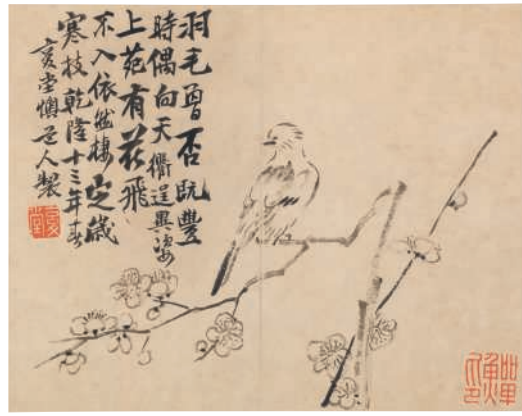 羽毛曾否既豐
時偶向天衢逞異姿
上苑有花飛
不入依然棲定歲
寒枝乾隆十三年春
复堂懊道人製
复堂